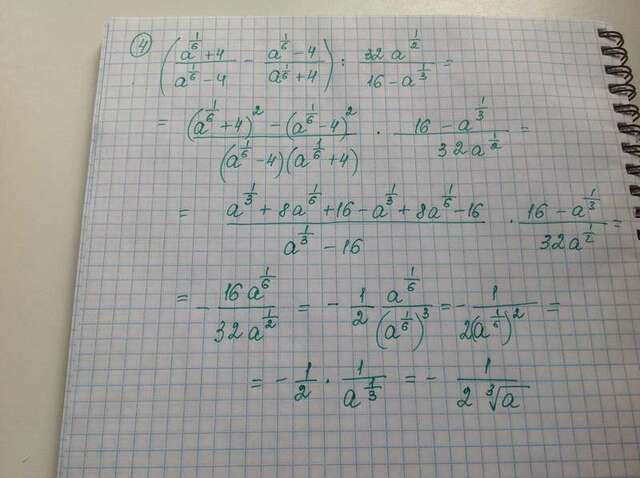 ④ ( (a^(1/6) + 4)/(a^(1/6) - 4) - (a^(1/6) - 4)/(a^(1/6) + 4) ) : (32a^(1/2))/(16 - a^(1/3)) =
= ((a^(1/6) + 4)^2 - (a^(1/6) - 4)^2)/((a^(1/6) - 4)(a^(1/6) + 4)) · (16 - a^(1/3))/(32a^(1/2)) =
= (a^(1/3) + 8a^(1/6) + 16 - a^(1/3) + 8a^(1/6) - 16)/(a^(1/3) - 16) · (16 - a^(1/3))/(32a^(1/2)) =
= - (16a^(1/6))/(32a^(1/2)) = - 1/2 a^(1/6)/(a^(1/6))^3 = - 1/(2(a^(1/6))^2) =
= - 1/2 · 1/a^(1/3) = - 1/(2∛a)